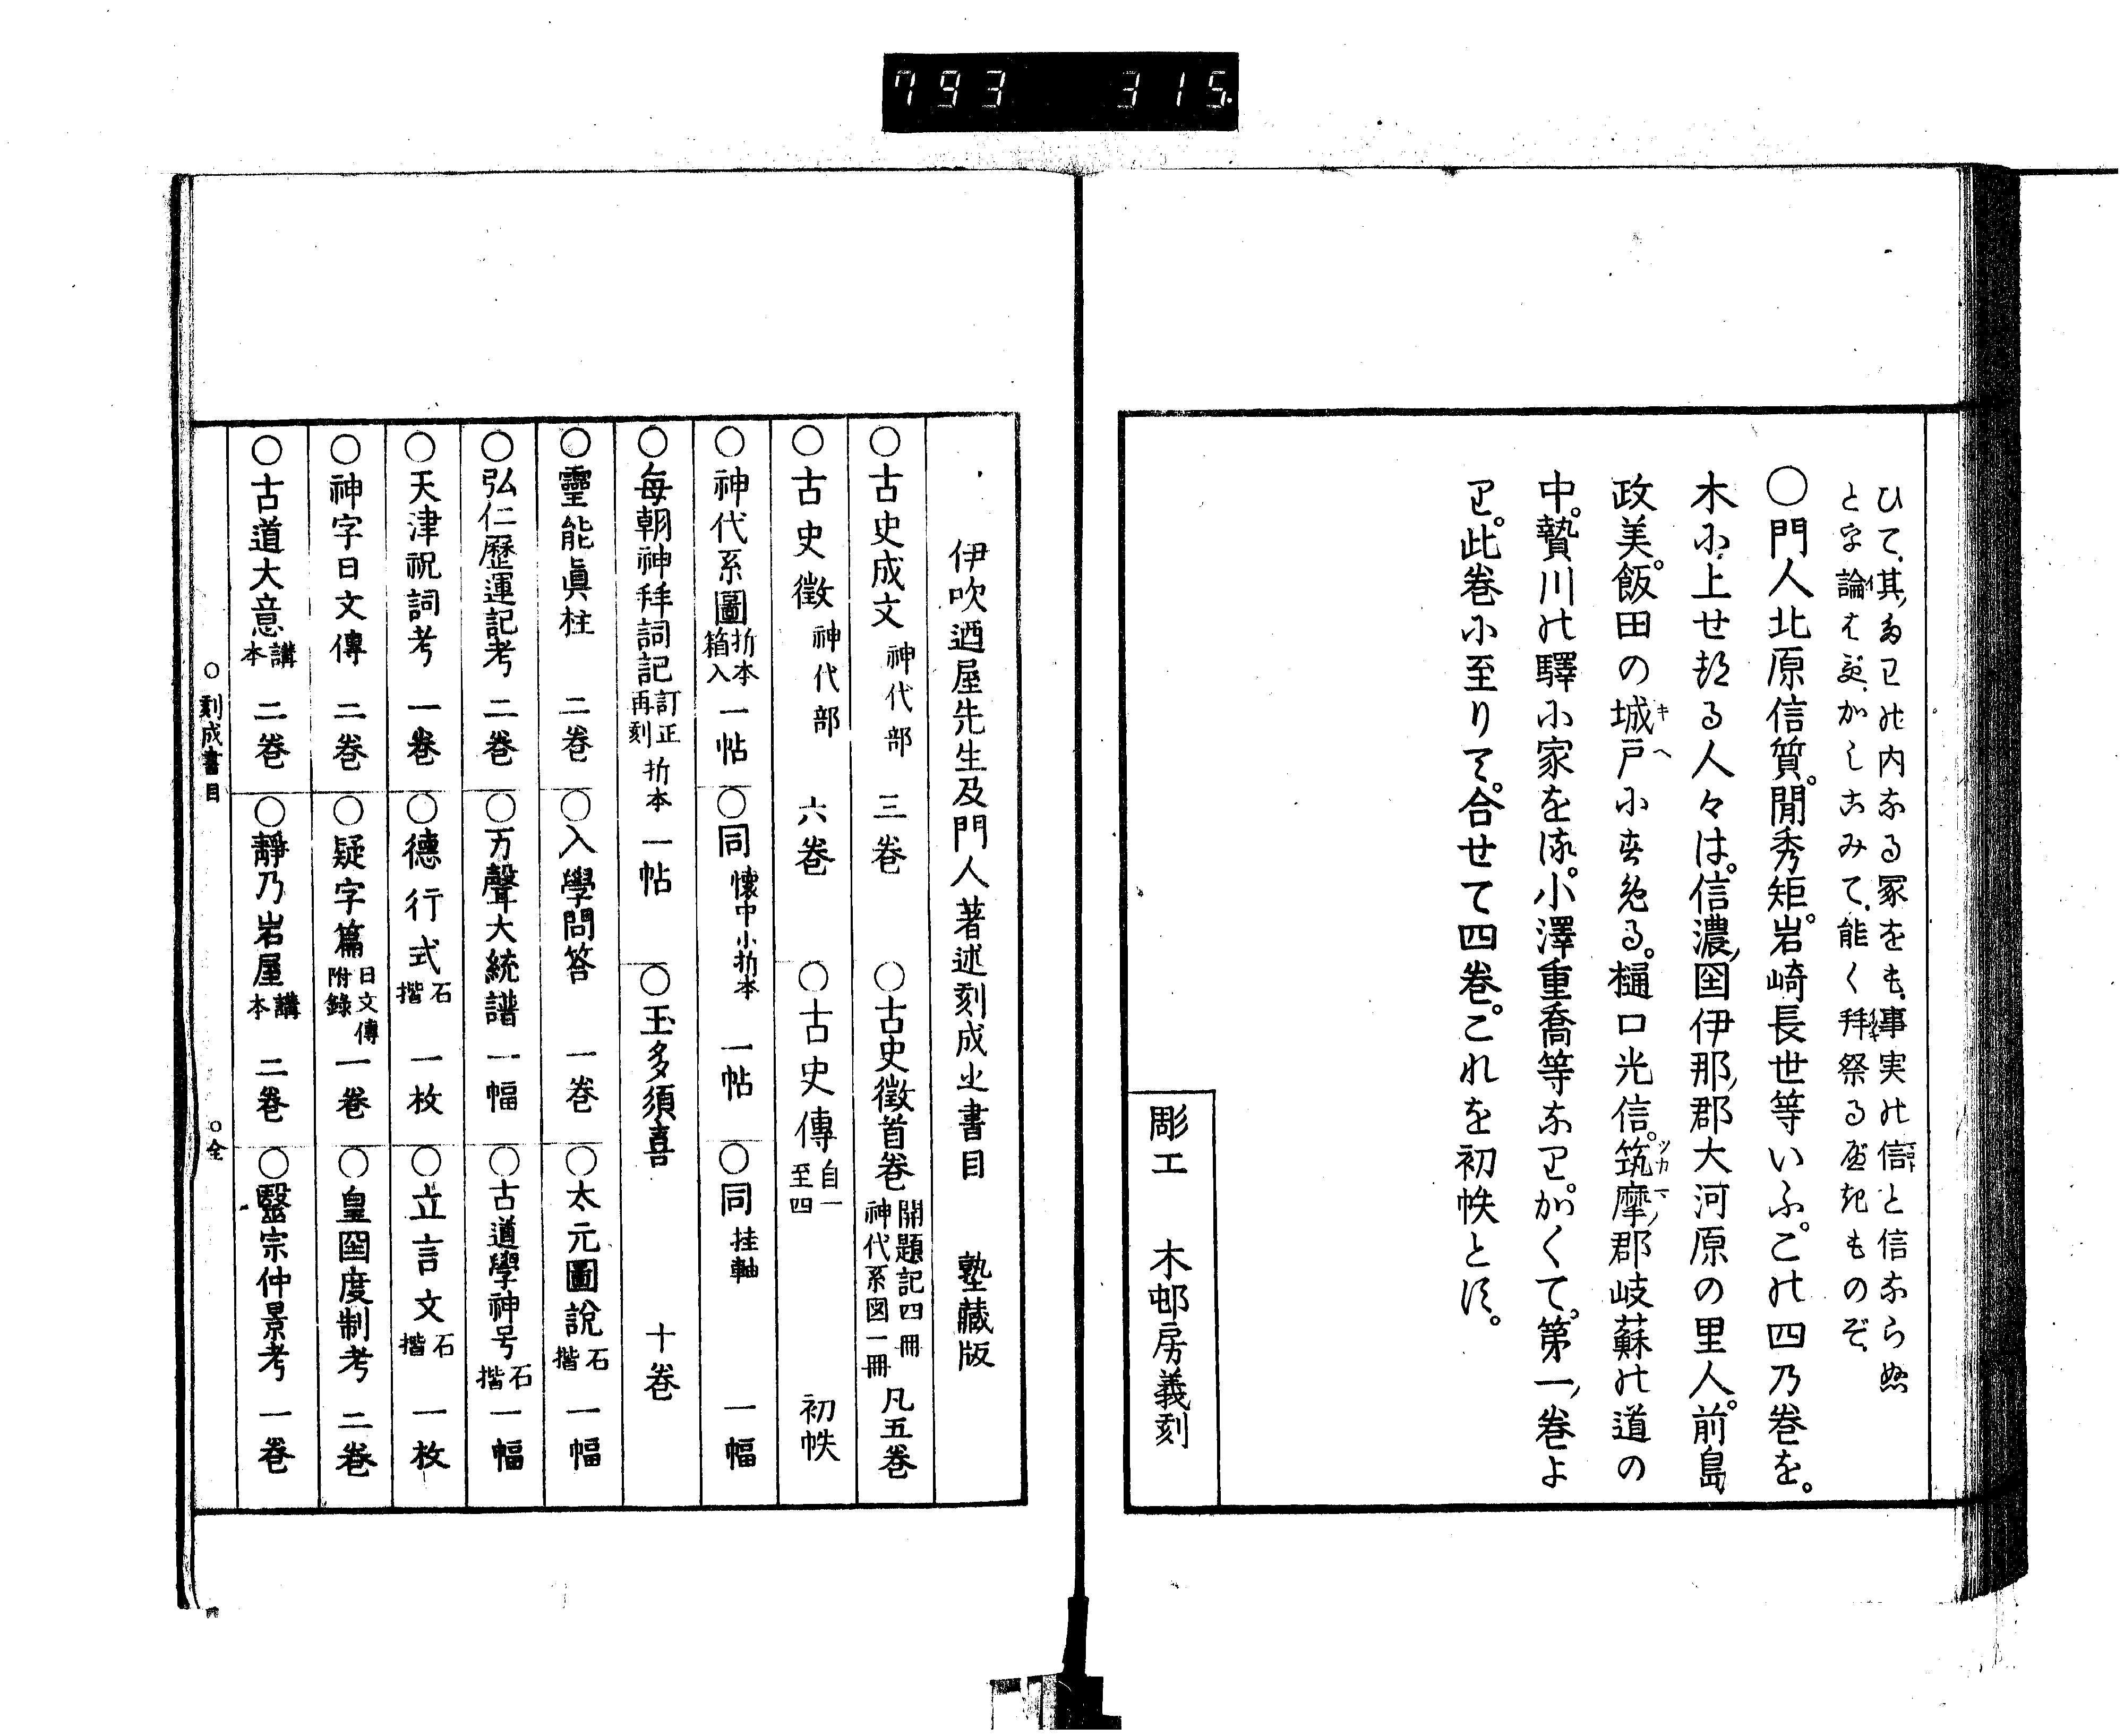 793 315
ひて、其あたりの内なる冢をも、事実の信と信ならぬ
木に上せたる人々は。信濃ノ国伊那ノ郡大河原の里人。前島
〇門人北原信質。間秀矩。岩崎長世等いふ。この四乃巻を。
政美。飯田の城戸にすめる。樋口光信。筑摩ノ郡岐蘇の道の
中。贄川の驛に家をる。小澤重喬等なり。かくて。第一ノ巻よ
り。此巻に至りて。合せて四巻。これを初帙とす。
彫工 木邨房義刻
伊吹廼屋先生及門人著述刻成之書目 塾藏版
〇古史成文 神代部 三巻 〇古史徴首巻 開題記四冊 神代系図一冊 凡五巻
〇古史徴 神代部 六巻 〇古史傳 自一至四 初帙
〇神代系圖 折本箱入 一帖 〇同 懐中小折本 一帖 〇同 挂軸 一幅
〇毎朝神拜詞記 訂正再刻 折本 一帖 〇玉多須喜 十巻
〇靈能眞柱 二巻 〇入學問答 一巻 〇太元圖説 石揩 一幅
〇弘仁歴運記考 二巻 〇万聲大統譜 一幅 〇古道學神号 石揩 一幅
〇天津祝詞考 一巻 〇德行式 石揩 一枚 〇立言文 石揩 一枚
〇神字日文傳 二巻 〇疑字篇 日文傳附錄 一巻 〇皇国度制考 二巻
〇古道大意 講本 二巻 〇靜乃岩屋 講本 二巻 〇醫宗仲景考 一巻
〇刻成書目 〇全